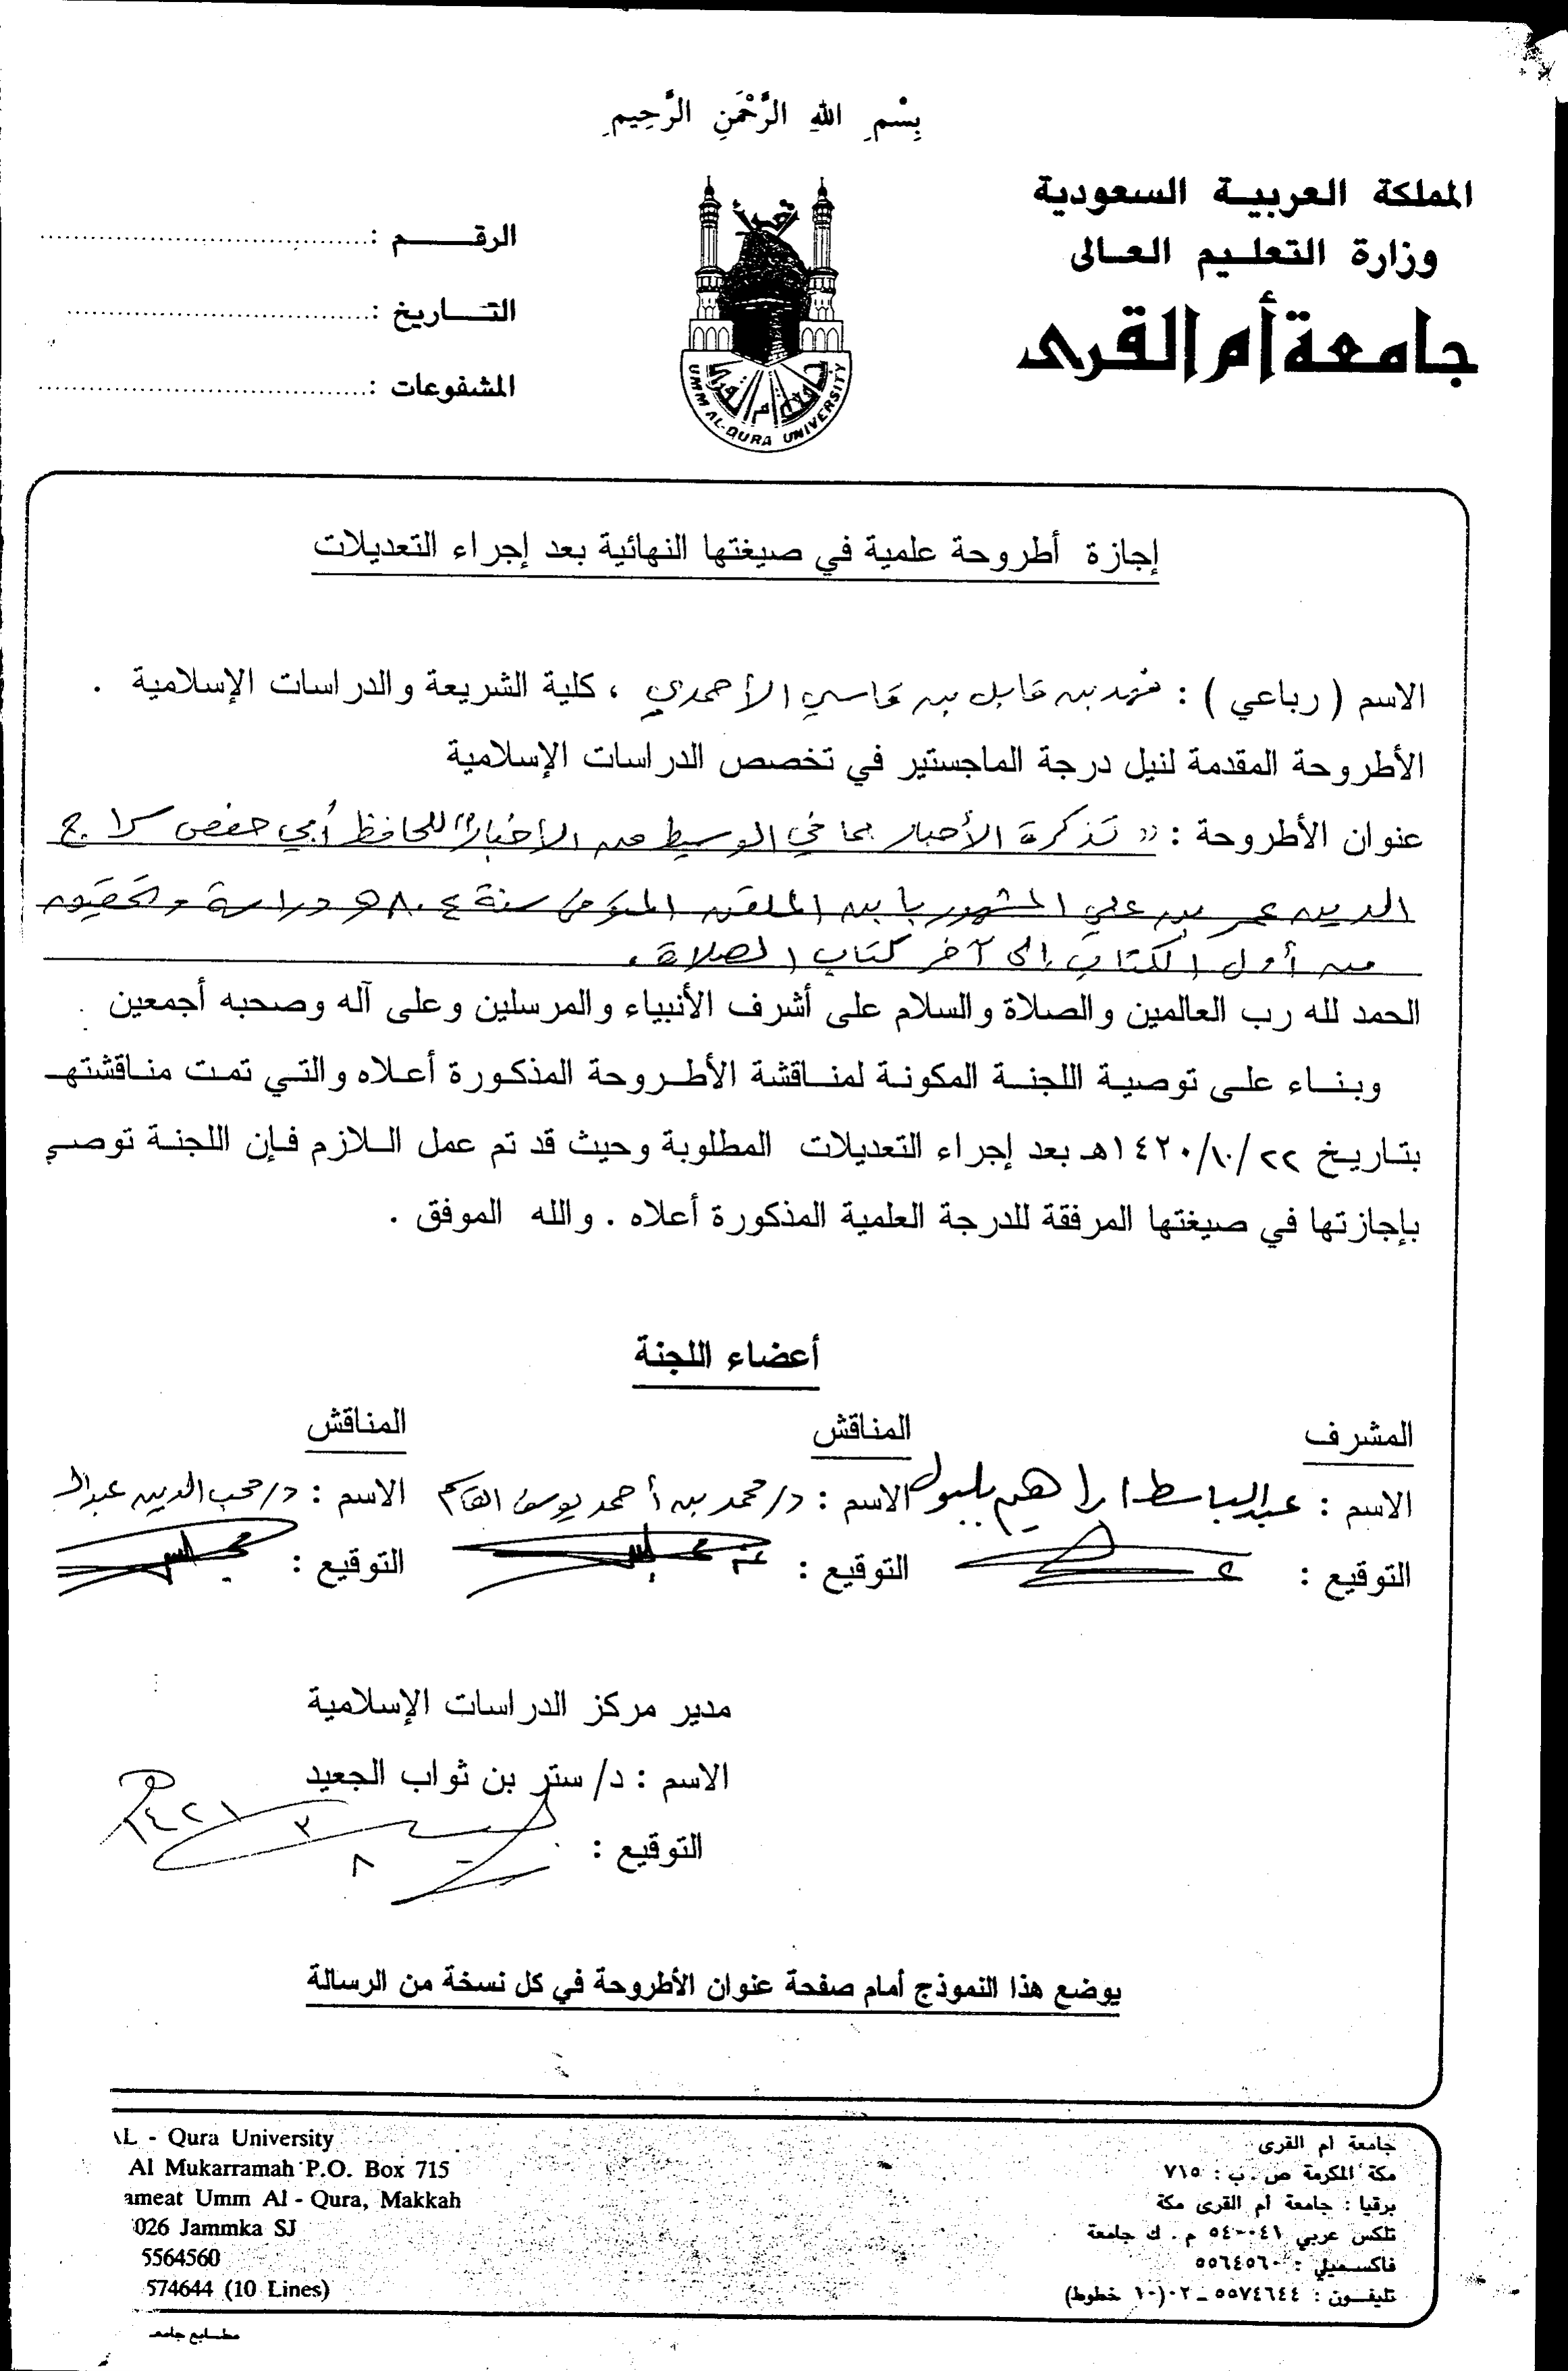 بِسْمِ اللهِ الرَّحْمَنِ الرَّحِيمِ
المملكة العربية السعودية
وزارة التعليم العالى
جامعة أم القرى
الرقم :
التاريخ :
المشفوعات :
UMM AL-QURA UNIVERSITY
إجازة أطروحة علمية في صيغتها النهائية بعد إجراء التعديلات
الاسم ( رباعي ) : فهد بن قابل بن قاسي الأحمدي ، كلية الشريعة والدراسات الإسلامية .
الأطروحة المقدمة لنيل درجة الماجستير في تخصص الدراسات الإسلامية
عنوان الأطروحة : « تذكرة الأحبار بما في الوسيط من الأخبار » للحافظ أبي حفص سراج
الدين عمر بن علي المشهور بابن الملقن المتوفى سنة ٨٠٤هـ دراسة وتحقيق
من أول الكتاب إلى آخر كتاب الصلاة .
الحمد لله رب العالمين والصلاة والسلام على أشرف الأنبياء والمرسلين وعلى آله وصحبه أجمعين .
وبناء على توصية اللجنة المكونة لمناقشة الأطروحة المذكورة أعلاه والتي تمت مناقشتها
بتاريخ ٢٢/١٠/١٤٢٠هـ بعد إجراء التعديلات المطلوبة وحيث قد تم عمل اللازم فإن اللجنة توصي
بإجازتها في صيغتها المرفقة للدرجة العلمية المذكورة أعلاه . والله الموفق .
أعضاء اللجنة
المشرف المناقش المناقش
الاسم : عبدالباسط ابراهيم بلبول الاسم : د/محمد بن أحمد يوسف القاسم الاسم : د/محب الدين عبدال
التوقيع : التوقيع : التوقيع :
مدير مركز الدراسات الإسلامية
الاسم : د/ ستر بن ثواب الجعيد
التوقيع :
يوضع هذا النموذج أمام صفحة عنوان الأطروحة في كل نسخة من الرسالة
جامعة أم القرى
مكة المكرمة ص . ب : ٧١٥
برقيا : جامعة أم القرى مكة
تلكس عربي ٥٤٠٠٤١ م . ك جامعة
فاكسميلي : ٥٥٦٤٥٦٠
تليفون : ٥٥٧٤٦٤٤ - ٠٢ (١٠ خطوط)
AL - Qura University
Al Mukarramah P.O. Box 715
ameat Umm Al - Qura, Makkah
026 Jammka SJ
5564560
574644 (10 Lines)
مطابع جامعـ